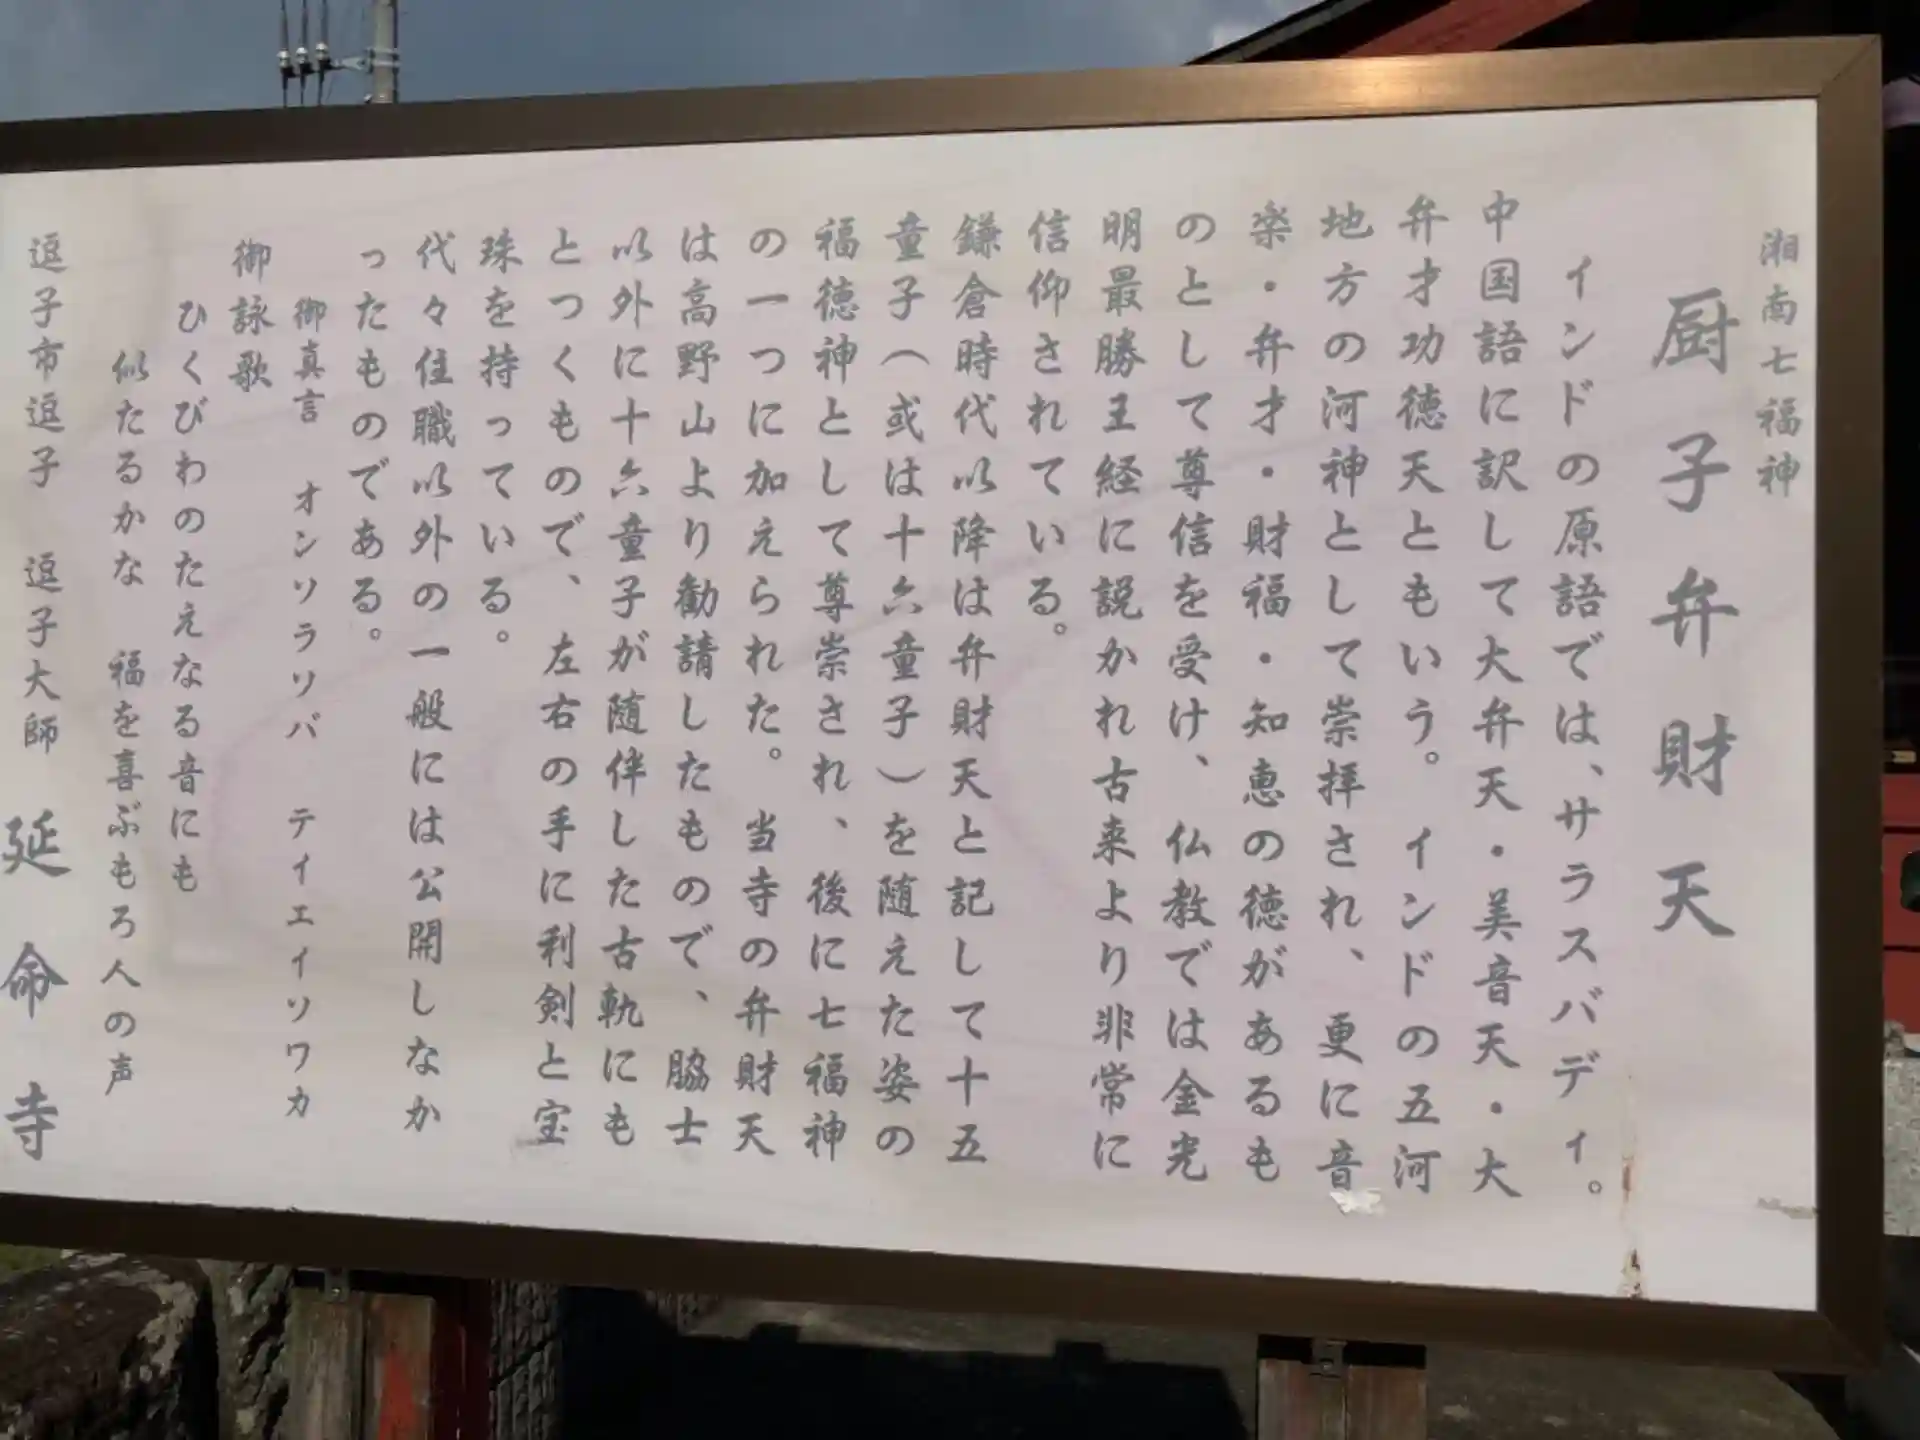 湘南七福神
厨子弁財天
インドの原語では、サラスバディ。
中国語に訳して大弁天・美音天・大
弁才功徳天ともいう。インドの五河
地方の河神として崇拝され、更に音
楽・弁才・財福・知恵の徳があるも
のとして尊信を受け、仏教では金光
明最勝王経に説かれ古来より非常に
信仰されている。
鎌倉時代以降は弁財天と記して十五
童子(或は十六童子)を随えた姿の
福徳神として尊崇され、後に七福神
の一つに加えられた。当寺の弁財天
は高野山より勧請したもので、脇士
以外に十六童子が随伴した古軌にも
とつくもので、左右の手に利剣と宝
珠を持っている。
代々住職以外の一般には公開しなか
ったものである。
御真言 オンソラソバ テイエイソワカ
御詠歌
ひくびわのたえなる音にも
似たるかな 福を喜ぶもろ人の声
逗子市逗子 逗子大師 延命寺